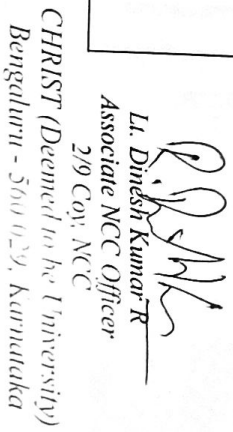 Lt. Dinesh Kumar R
Associate NCC Officer
2/9 Coy, NCC
CHRIST (Deemed to be University)
Bengaluru - 560 029, Karnataka